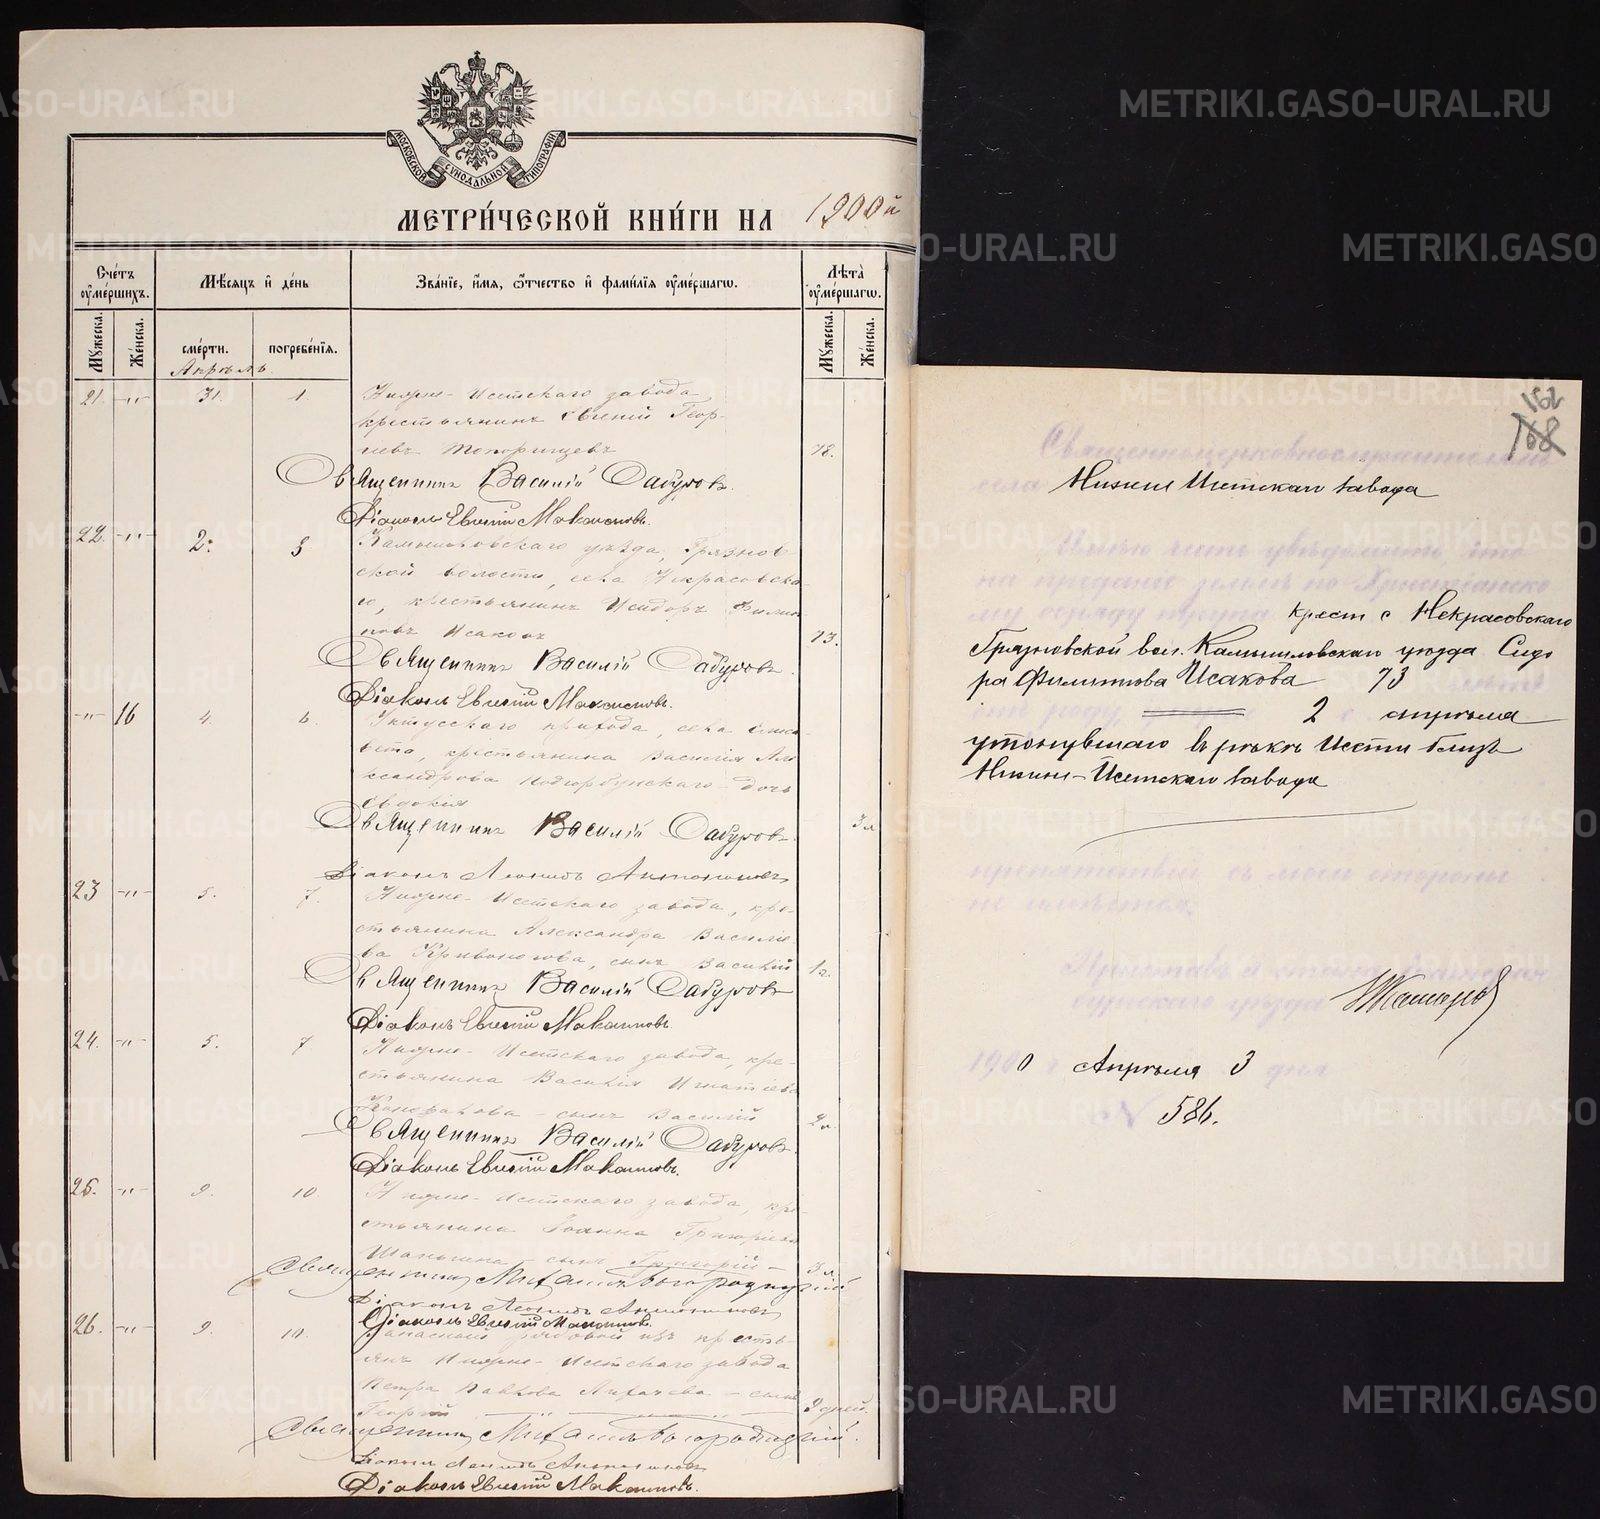 МОСКОВСКОЙ СѴНОДАЛЬНОЙ ТИПОГРАФІИ
МЕТРИ́ЧЕСКОЙ КНИ́ГИ НА 1900й
Сче́тъ оу҆ме́ршихъ.
Мѣ́сяцъ и҆ де́нь
Зва́нїе, и҆́мя, ѻ҆́тчество и҆ фами́лїя оу҆ме́ршагѡ.
Лѣта̀ оу҆ме́ршагѡ.
Мꙋ́жеска.
Же́нска.
сме́рти.
погребе́нїя.
Мꙋ́жеска.
Же́нска.
Апрѣль
21. -„- 31. 1. Нижне-Исетскаго завода
крестьянинъ Евгеній Геор-
гіевъ Топорищевъ 78.
Священникъ Василій Сабуровъ.
Діаконъ Евгеній Макаимовъ.
22. -„- 2. 3 Камышловскаго уѣзда, Грязнов-
ской волости, села Некрасовска-
го, крестьянинъ Исидоръ Филип-
повъ Исаковъ 73.
Священникъ Василій Сабуровъ.
Діаконъ Евгеній Макаимовъ.
-„- 16 4. 6. Уктусскаго прихода, села
крестьянина Василія Але-
ксандрова дочь
Евдокія 3 л
Священникъ Василій Сабуровъ.
Діаконъ Леонидъ Антониновъ
23 -„- 5. 7. Нижне-Исетскаго завода, кре-
стьянина Александра Василье-
ва Кривоногова, сынъ Василій 1 г.
Священникъ Василій Сабуровъ
Діаконъ Евгеній Макаимовъ.
24. -„- 5. 7 Нижне-Исетскаго завода, кре-
стьянина Василія Игнатіева
сынъ Василій 2 г.
Священникъ Василій Сабуровъ.
Діаконъ Евгеній Макаимовъ.
25. -„- 9. 10. Нижне-Исетскаго завода, кре-
стьянина Іоанна Григорьева
сынъ Григорій 3 л.
Священникъ Михаилъ Богородицкій
Діаконъ Леонидъ Антониновъ
Діаконъ Евгеній Макаимовъ.
26. -„- 9. 10. Запасный рядовой изъ кресть-
янъ Нижне-Исетскаго завода
Петра Павлова Лихачева - сынъ
Георгій 9 дней.
Священникъ Михаилъ Богородицкій.
Діаконъ Леонидъ Антониновъ
Діаконъ Евгеній Макаимовъ.
152
168
Священноцерковнослужителямъ
села Нижне Исетскаго завода
Имѣю честь увѣдомить, что
на преданіе землѣ по Христіанско
му обряду трупа крест с Некрасовскаго
Грязновской вол. Камышловскаго уѣзда Сидо
ра Филиппова Исакова 73 лѣтъ
отъ роду, 2 с апрѣля
утонувшаго въ рѣкѣ Исети близъ
Нижне-Исетскаго завода
препятствій съ моей стороны
не имѣется.
Приставъ 2 стана Екатерин
бургскаго уѣзда
1900 г Апрѣля 3 дня
N 586.